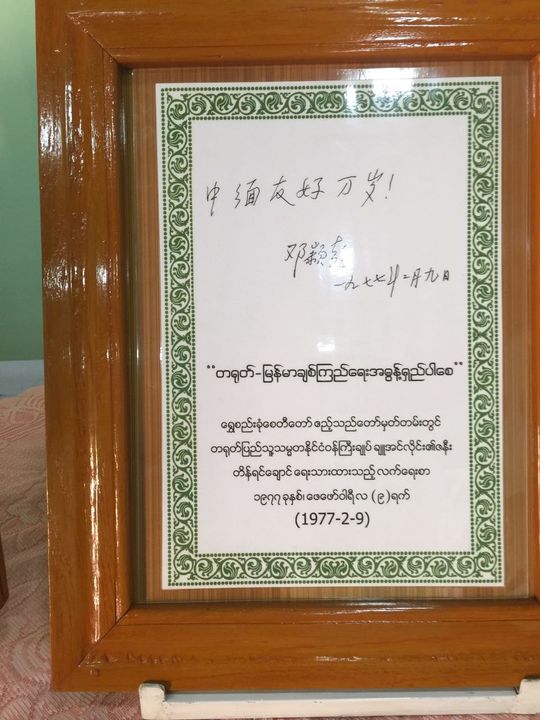 中缅友好万岁!
邓颖超
一九七七年二月九日
"တရုတ်-မြန်မာချစ်ကြည်ရေးအဓွန့်ရှည်ပါစေ"
ရွှေစည်းခုံစေတီတော် ဧည့်သည်တော်မှတ်တမ်းတွင်
တရုတ်ပြည်သူ့သမ္မတနိုင်ငံဝန်ကြီးချုပ် ချူအင်လိုင်း၏ဇနီး
တိန်ရင်ချောင် ရေးသားထားသည့် လက်ရေးစာ
၁၉၇၇ ခုနှစ်၊ ဖေဖော်ဝါရီလ (၉) ရက်
(1977-2-9)